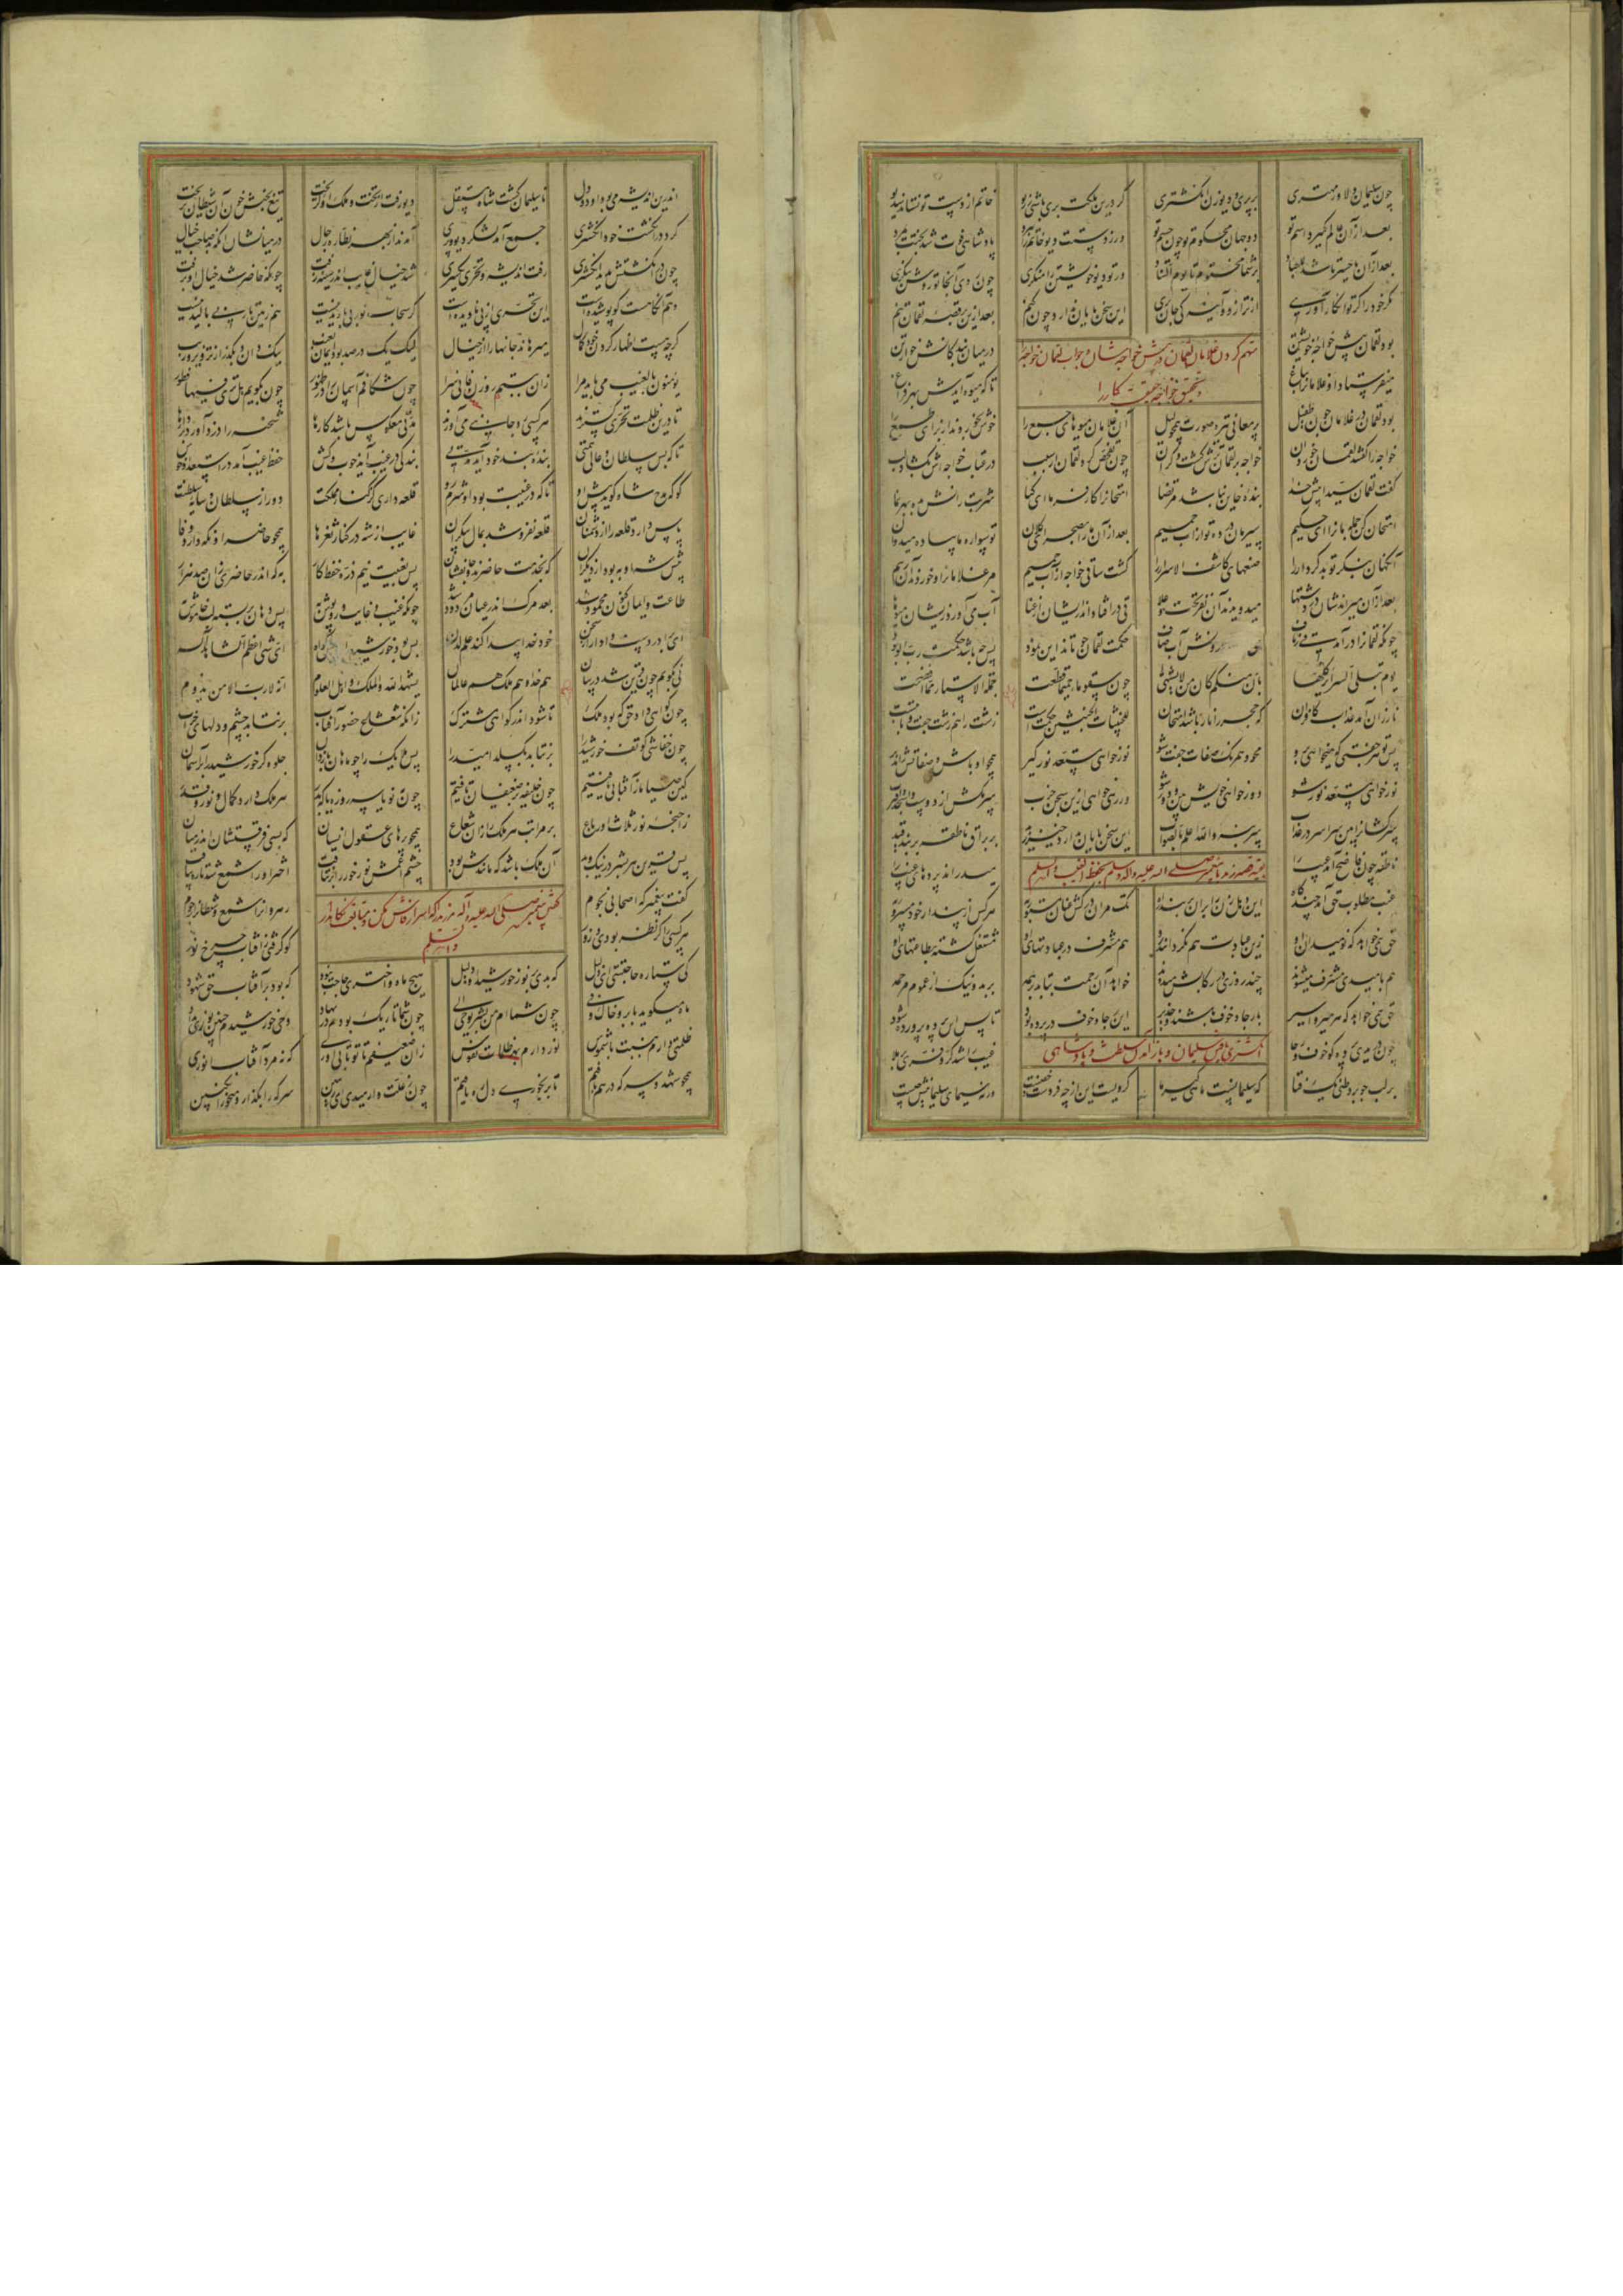 چون سلیمان دلا در مهتری بر پری و دیو زن انگشتری گر درین ملکت بری باشی ز ریو خاتم از دست تو نستاند دیو
بعد از آن عالم گیرد اسم تو دو جهان محکوم تو چون جسم تو ور ز دستت دیو خاتم را ببرد پادشاهی فوت شد بختت بمرد
بعد از آن یا حسرتا شد یا عباد بر شما محتوم تا یوم التناد ور تو دیو خویشتن را منکری چون روی آنجا تو روشن بنگری
مکر خود را گر تو انکار آوری از ترازو و آینه کی جان بری این سخن پایان ندارد چون کنم بعد ازین قصه لقمان تنم
متهم کردن غلامان لقمان را پیش خواجه شان و جواب لقمان خواجه را
و تحقیق خواجه حقیقت کار را
بود لقمان پیش خواجه خویشتن در میان بندگانش خوارتن
میفرستاد او غلامان را بباغ تا که میوه آیدش بهر فراغ
بود لقمان در غلامان چون طفیل پر معانی تیره صورت همچو لیل آن غلامان میوهای جمع را خوش بخوردند از برای طمع را
خواجه را گفتند لقمان خورد آن خواجه بر لقمان ترش گشت و گران چون تفحص کرد لقمان از سبب در عتاب خواجه اش بگشاد لب
گفت لقمان سیدا پیش خدا بنده خاین نباشد مرتضا امتحان را کار فرما ای کیا
امتحان کن جمله ما را ای حکیم سیرمان در ده تو از آب حمیم بعد از آن ما را بصحرای کلان تو سواره ما پیاده میدوان
آنگهان بنگر تو بدکردار را صنعهای کاشف الاسرار را گشت ساقی خواجه از آب حمیم مر غلامان را و خوردند آن ز بیم
بعد از آن میراندشان در دشتها میدویدند آن نفر تحت و علا قی در افتادند ایشان از عنا آب می آورد زیشان میوها
چونکه لقمان را در آمد قی ز ناف روانش آب صاف حکمت لقمان چو تاند این نمود پس چه باشد حکمت رب الوجود
یوم تبلی السرایر کلها بان منکم کامن لا یشتهی چون سقوا ماء حمیما قطعت جملة الاستار مما افضحت
نار زان آمد عذاب کافران که حجر را نار باشد امتحان للخبیثات الخبیثین حکمت است زشت را هم زشت جفت و بابت است
پس تو هر جفتی که میخواهی برو محو و هم رنگ صفات جفت شو نور خواهی مستعد نور گیر همچو او باش و صفاتش را پذیر
نور خواهی مستعد نور شو دور خواهی خویش بین و دور شو ور رهی خواهی ازین سجن خرب سر مکش از دوست و اسجد و اقترب
سرکشان را بین سراسر در عذاب سیر نه والله اعلم بالصواب این سخن پایان ندارد خیز زید بر براق ناطقه بر بند قید
بقیه قصه زید با پیغمبر صلی الله علیه و آله و سلم
ناطقه چون فاضح آمد عیب را میدراند پردهای غیب را
غیب مطلوب حق آمد چندگاه این دهل زن را بران بر بند راه تک مران درکش عنان مستور به هر کس از پندار خود مسرور به
حق همی خواهد که نومیدان او زین عبادت هم نگردانند رو هم مشرف در عبادتهای او مشتغل گشته بطاعتهای او
هم بامیدی مشرف میشوند چند روزی در رکابش میدوند خواهد آن رحمت بتابد بر همه بر بد و نیک از عموم مرحمه
حق همی خواهد که هر میر و اسیر با رجا و خوف باشند و حذیر این رجا و خوف در پرده بود تا پس این پرده پرورده شود
چون دریدی پرده کو خوف و رجا غیب را شد کر و فری بر ملا
بر لب جو برد ظنی یک فتا که سلیمانست ماهی گیر ما گر ویست این از چه فردست و خفیست ور نه سیمای سلیمانیش چیست
اندرین اندیشه می بود او دو دل تا سلیمان گشت شاه مستقل دیو رفت از تخت و ملک او گریخت تیغ بختش خون آن شیطان بریخت
کرد در انگشت خود انگشتری جمع آمد لشکر دیو و پری آمدند از بهر نظاره رجال در میانشان آنکه بد صاحب خیال
چون در انگشتش بدید انگشتری رفت اندیشه و تحری یکسری شد خیال غایب اندر سینه زفت چونکه حاضر شد خیال او برفت
وهم آنگاهست کو پوشیده است این تحری از پی نادیده است گر سحاب نور بی باریدنیست هم زمین تار بی بالیدنیست
لیک یک در صد بود ایمان بغیب نیک دان و بگذر از تزویر و ریب
یؤمنون بالغیب می باید مرا زان ببستم روزن فانی سرا چون شکافم آسمان را در ظهور چون بگویم هل تری فیها فطور
تا درین ظلمت تحری گسترند هر کسی رو جانبی می آورند مدتی معکوس باشد کارها شحنه را دزد آورد بر دارها
تا که بس سلطان و عالی همتی بنده بنده خود آید مدتی بندگی در غیب آمد خوب و کش حفظ غیب آمد در استعباد خوش
کو که مدح شاه گوید پیش او تا که در غیبت بود او شرم رو قلعه داری کز کنار مملکت دور از سلطان و سایه سلطنت
پاس دارد قلعه را از دشمنان قلعه نفروشد بمال بیکران غایب از شه در کنار ثغرها همچو حاضر او نگه دارد وفا
پیش شه او به بود از دیگران که بخدمت حاضرند و جانفشان پس بغیبت نیم ذره حفظ کار به که اندر حاضری زان صد هزار
طاعت و ایمان کنون محمود شد بعد مرگ اندر عیان مردود شد چونکه غیب و غایب و روپوش به پس دهان بر بسته لب خاموش به
ای برادر دست وادار از سخن خود خدا پیدا کند علم لدن بس بود خورشید را رویش گواه ای شیء اعظم الشاهد اله
نی بگویم چون قرین شد در بیان هم خدا و هم ملک هم عالمان یشهد الله و الملک و اهل العلوم انه لا رب الا من یدوم
چون گواهی داد حق که بود ملک تا شود اندر گواهی مشترک زانکه شعشاع حضور آفتاب بر نتابد چشم و دلهای خراب
چون خفاشی کو تف خورشید را بر نتابد بگسلد امید را پس ملایک را چو ما هم باز دان جلوه گر خورشید را بر آسمان
کین ضیا ما ز آفتابی یافتیم چون خلیفه بر ضعیفان تافتیم هر ملک دارد کمال و نور و قدر
ز اجنحه نور ثلاث او رباع بر مراتب هر ملک را زان شعاع همچو پرهای عقول انسیان که بسی فرقستشان اندر میان
پس قرین هر بشر در نیک و بد آن ملک باشد که مانندش بود چشم اعمش نور خور را بر نتافت اختر او را شمع شد تا ره بیافت
گفتن پیغمبر صلی الله علیه و آله مر زید را که اسرار فاش مکن و متابعت نگاه دار
والسلم
گفت پیغمبر که اصحابی نجوم رهروان را شمع و شیطان را رجوم
هر کسی را گر نظر بودی و زور کو گرفتی ز آفتاب چرخ نور
کی ستاره حاجتستی ای ذلیل که بدی بر نور خورشید او دلیل هیچ ماه و اختری حاجت نبود که بود بر آفتاب حق شهود
ماه میگوید بابر و خاک و فی چون شما ام من بشر یوحی الی چون شما تاریک بودم در نهاد وحی خورشیدم چنین نوری بداد
ظلمتی دارم بنسبت با شموس نور دارم بهر ظلمات نفوس زان ضعیفم تا تو تابی آوری که نه مرد آفتاب انوری
همچو شهد و سرکه در هم بافتم تا برنجوری دل ره یافتم چون ز علت وارهیدی ای رهین سرکه را بگذار و میخور انگبین